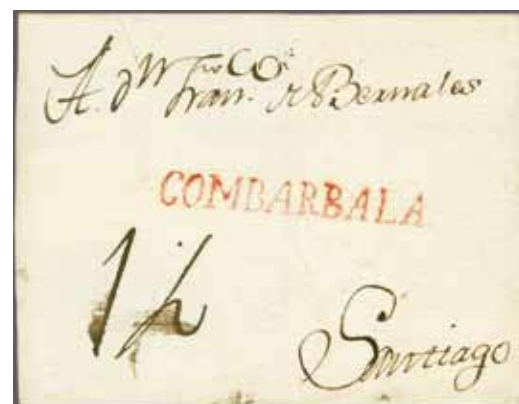 A. dn Franco de Bernales
COMBARBALA
1½
Santiago